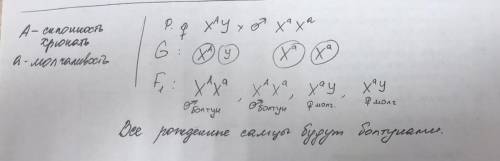 А – склонность
хрюкать
а – молчаливость
P: ♀ XᴬY × ♂ XᵃXᵃ
G: Xᴬ Y Xᵃ Xᵃ
F₁: XᴬXᵃ, XᴬXᵃ, XᵃY, XᵃY
♂ болтун ♂ болтун ♀ молч. ♀ молч.
Все рожденные самцы будут болтунами.